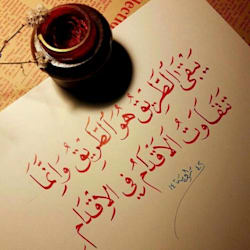 يَبْقَى الطَّرِيقُ هُوَ الطَّرِيقُ وَإِنَّمَا
تَتَفَاوَتُ الأَقْدَامُ فِي الإِقْدَامِ